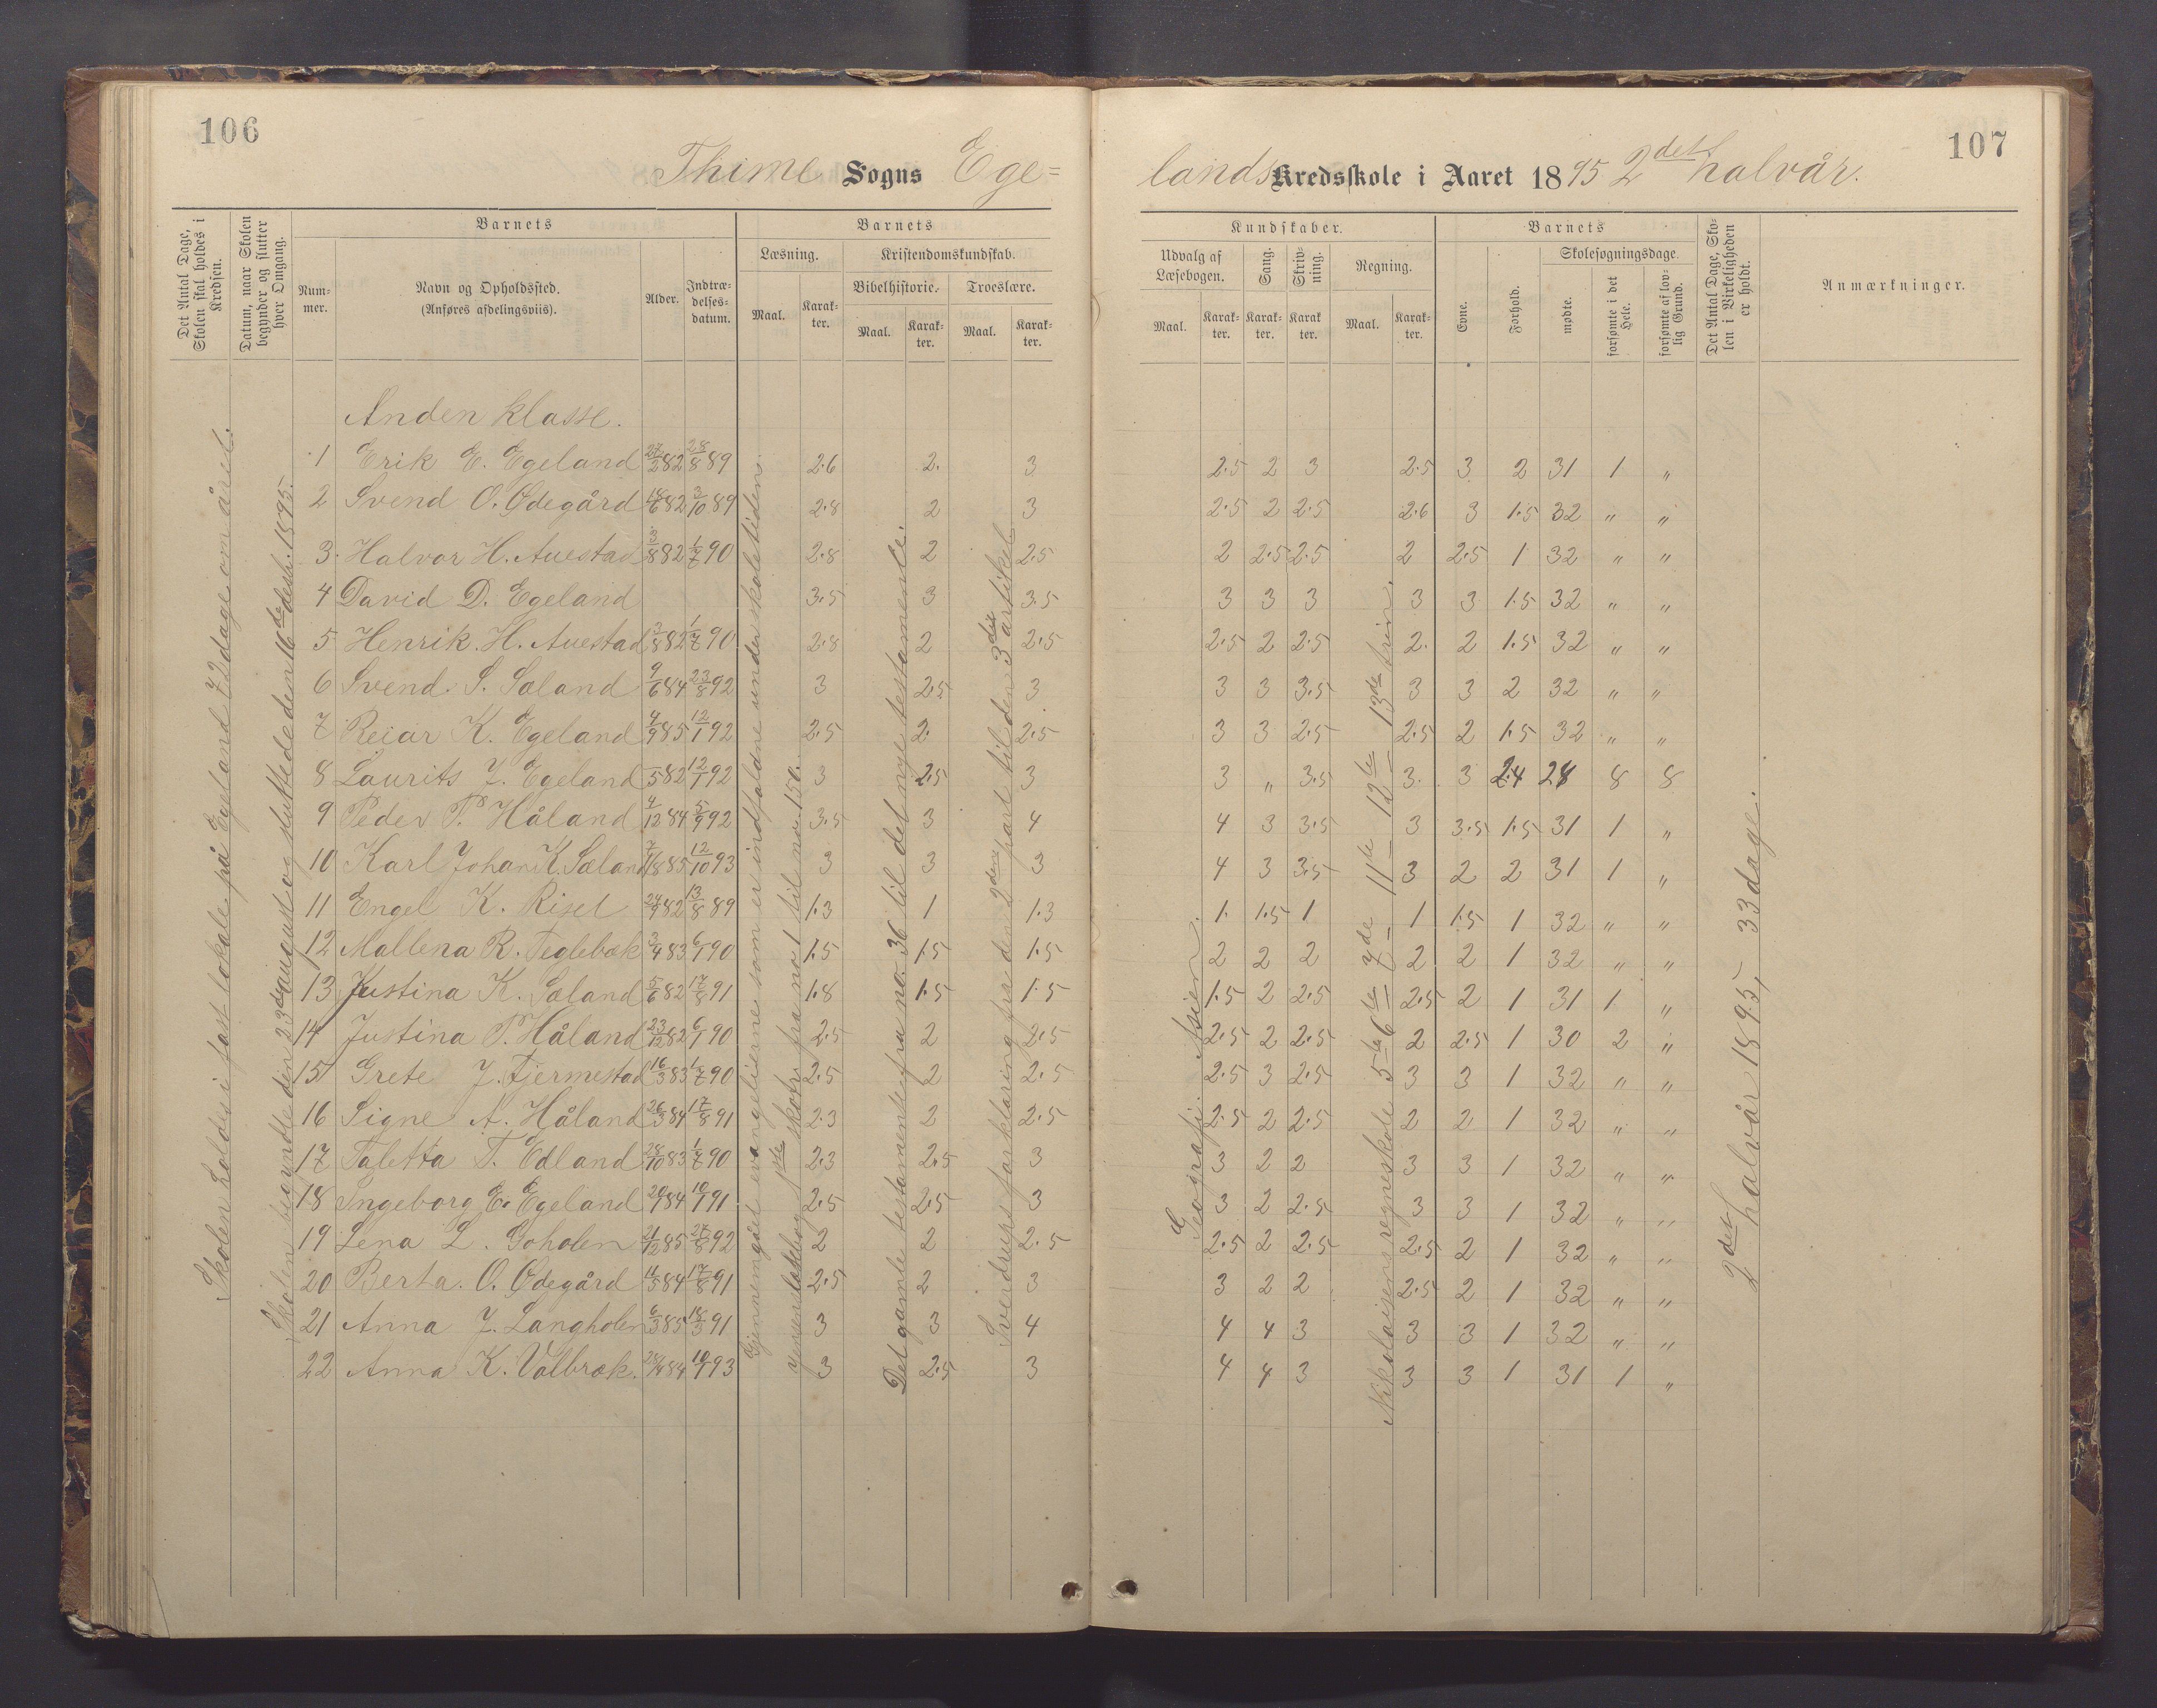 106
Thime Sogns Ege=
Det Antal Dage, Skolen skal holdes i Kredsen.
Datum, naar Skolen begynder og slutter hver Omgang.
Barnets
Nummer.
Navn og Opholdssted.
(Anføres afdelingsviis).
Alder.
Indtrædelsesdatum.
Barnets
Læsning.
Maal.
Karakter.
Kristendomskundskab.
Bibelhistorie.
Maal.
Karakter.
Troeslære.
Maal.
Karakter.
Skolen holdes i fast lokale på Egeland 72 dage om året.
Skolen begyndte den 23de august og sluttede den 16de desbr. 1895.
Gjennemgået evangelierne som er indfaldne under skoletiden.
Jensens læsebog 1ste skoletr. fra no 1 til no. 150.
Det gamle testamente fra no. 36 til det nye testamente.
Sverdrups forklaring fra den 2den part til den 3die artikel
Anden klasse.
1 Erik E. Egeland 27/2 82 28/8 89 2.6 2. 3
2 Svend O. Ødegård 18/6 82 3/10 89 2.8 2 3
3. Halvor H. Auestad 8 82 1/7 90 2.8 2 2.5
4 David D. Egeland 3.5 3 3.5
5 Henrik H. Auestad 3/8 82 1/7 90 2.8 2 2.5
6 Svend S. Sæland 9/6 84 23/8 92 3 2.5 3
7 Reiar K. Egeland 4/9 85 12/1 92 2.5 2. 2.5
8 Laurits J. Egeland 5 82 12/1 92 3 2.5 3
9 Peder P. Håland 4/12 84 5/9 92 3.5 3 4
10 Karl Johan K. Sæland 85 12/10 93 3 3 3
11 Engel K. Risel 24/9 82 13/8 89 1.3 1 1.3
12 Mallena R. Teglebæk 3/9 83 6/1 90 1.5 1.5 1.5
13 Justina K. Sæland 5/6 82 17/8 91 1.8 1.5 1.5
14 Justina P. Håland 23/12 82 6/1 90 2.5 2 2.5
15 Grete J. Fjermestad 16/3 83 1/7 90 2.5 2 2.5
16 Signe A. Håland 26/3 84 17/8 91 2.3 2 2.5
17 Taletta T. Edland 28/10 83 1/7 90 2.3 2.5 3
18 Ingeborg E. Egeland 84 10/1 91 2.5 2.5 3
19 Lena L. Goholen 21/12 85 27/8 92 2 2 2.5
20 Berta O. Ødegård 11/5 84 17/8 91 2.5 2 3
21 Anna J. Langholen 6/3 85 18/3 91 3 3 4
22 Anna K. Valbræk. 84 10/1 93 3 2.5 3
107
lands Kredsskole i Aaret 1895 2det halvår.
Kundskaber.
Udvalg af Læsebogen.
Maal.
Karakter.
Sang.
Karakter.
Skrivning.
Karakter.
Regning.
Maal.
Karakter.
Barnets
Evne.
Forhold.
Skolesøgningsdage.
mødte.
forsømte i det Hele.
forsømte af lovlig Grund.
Det Antal Dage, Skolen i Virkeligheden er holdt.
Anmærkninger.
Geografi. Asien.
Nikolaisens regneskole 5te 6te – 7de – 11te – 12te – 13de trin.
2det halvår 1895, 33 dage.
2.5 2 3 2.5 3 2 31 1 "
2.5 2 2.5 2.6 3 1.5 32 " "
2 2.5 2.5 2 2.5 1 32 " "
3 3 3 3 3 1.5 32 " "
2.5 2 2.5 2. 2 1.5 32 " "
3 3 3.5 3 3 2 32 " "
3 3 2.5 2.5 2 1.5 32 " "
3 " 3.5 3. 3 2.4 28 8 8
4 3 3.5 3 3.5 1.5 31 1 "
4 3 3.5 3 2 2 31 1 "
1. 1.5 1 1 1.5 1 32 " "
2 2 2 2 2 1 32 " "
1.5 2 2.5 2.5 2 1 31 1 "
2.5 2 2.5 2 2.5 1 30 2 "
2.5 3 2.5 3 3 1 32 " "
2.5 2 2.5 2 2 1 32 " "
3 2 2 3 3 1 32 " "
3 2 2.5 3 3 1 32 " "
2.5 2 2.5 2.5 2 1 32 " "
3 2 2 2.5 2 1 32 " "
4 4 3 3 3 1 32 " "
4 4 3 3 3 1 31 1 "